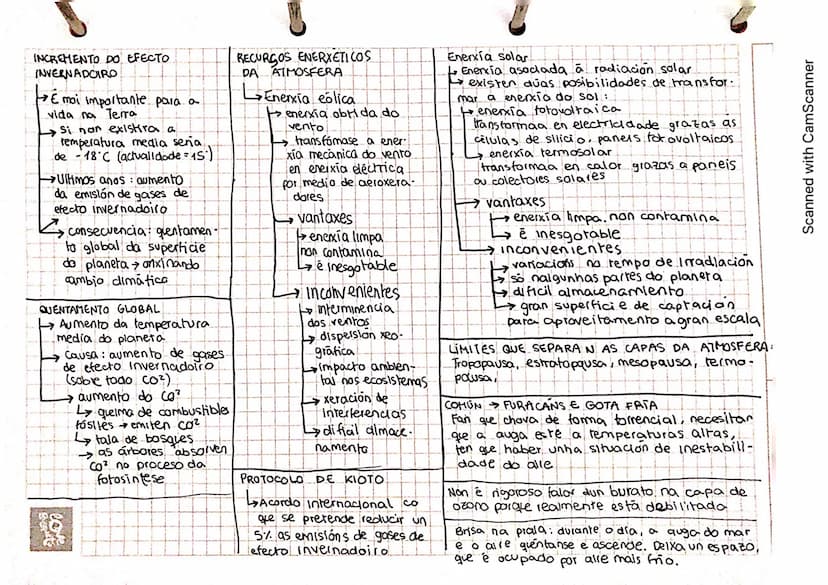 INCREMENTO DO EFECTO
INVERNADOIRO
É moi importante para a
vida na Terra
Si non existira a
temperatura media seria
de -18°C (actualidade = 15°)
Ultimos anos: aumento
da emisión de gases de
efecto invernadoiro
consecuencia: quentamen-
to global da superficie
do planeta → orixinando
cambio climático
QUENTAMENTO GLOBAL
Aumento da temperatura
media do planeta
Causa: aumento de gases
de efecto invernadoiro
(sobre todo CO²)
aumento do CO²
queima de combustibles
fósiles → emiten CO²
tala de bosques
as árbores absolven
CO² no proceso da
fotosíntese
RECURSOS ENERXÉTICOS
DA ATMOSFERA
Enerxía eólica
enerxía obtida do
vento
transfómase a ener-
xía mecánica do vento
en enerxía eléctrica
por medio de aeroxera-
dores
vantaxes
enerxía limpa
non contamina
é inesgotable
Inconvenientes
interminencia
dos ventos
dispersión xeo-
gráfica
impacto ambien-
tal nos ecosistemas
xeración de
interferencias
dificil almace-
namento
PROTOCOLO DE KIOTO
Acordo internacional co
que se pretende reducir un
5% as emisións de gases de
efecto invernadoiro
Enerxía solar
Enerxía asociada á radiación solar
existen dúas posibilidades de transfor-
mar a enerxía do sol:
enerxía fotovoltaica
transforman en electricidade grazas ás
células de silicio, paneis fotovoltaicos
enerxía termosolar
transforman en calor grazas a paneis
ou colectores solares
vantaxes
enerxía limpa, non contamina
é inesgotable
inconvenientes
variacións no tempo de irradiación
só nalgunhas partes do planeta
dificil almacenamiento
gran superficie de captación
para aproveitamento a gran escala
LÍMITES QUE SEPARAN AS CAPAS DA ATMOSFERA:
Tropopausa, estratopausa, mesopausa, termo-
pausa,
COMÚN → FURACÁNS E GOTA FRÍA
Fan que chova de forma torrencial, necesitan
que a auga esté a temperaturas altas,
ten que haber unha situación de inestabili-
dade do aire
Non é rigoroso falar dun burato na capa de
ozono porque realmente está debilitada
Brisa na praia: durante o día, a auga do mar
e o aire quéntanse e ascende. Deixa un espazo,
que é ocupado por aire mais frío.
Scanned with CamScanner